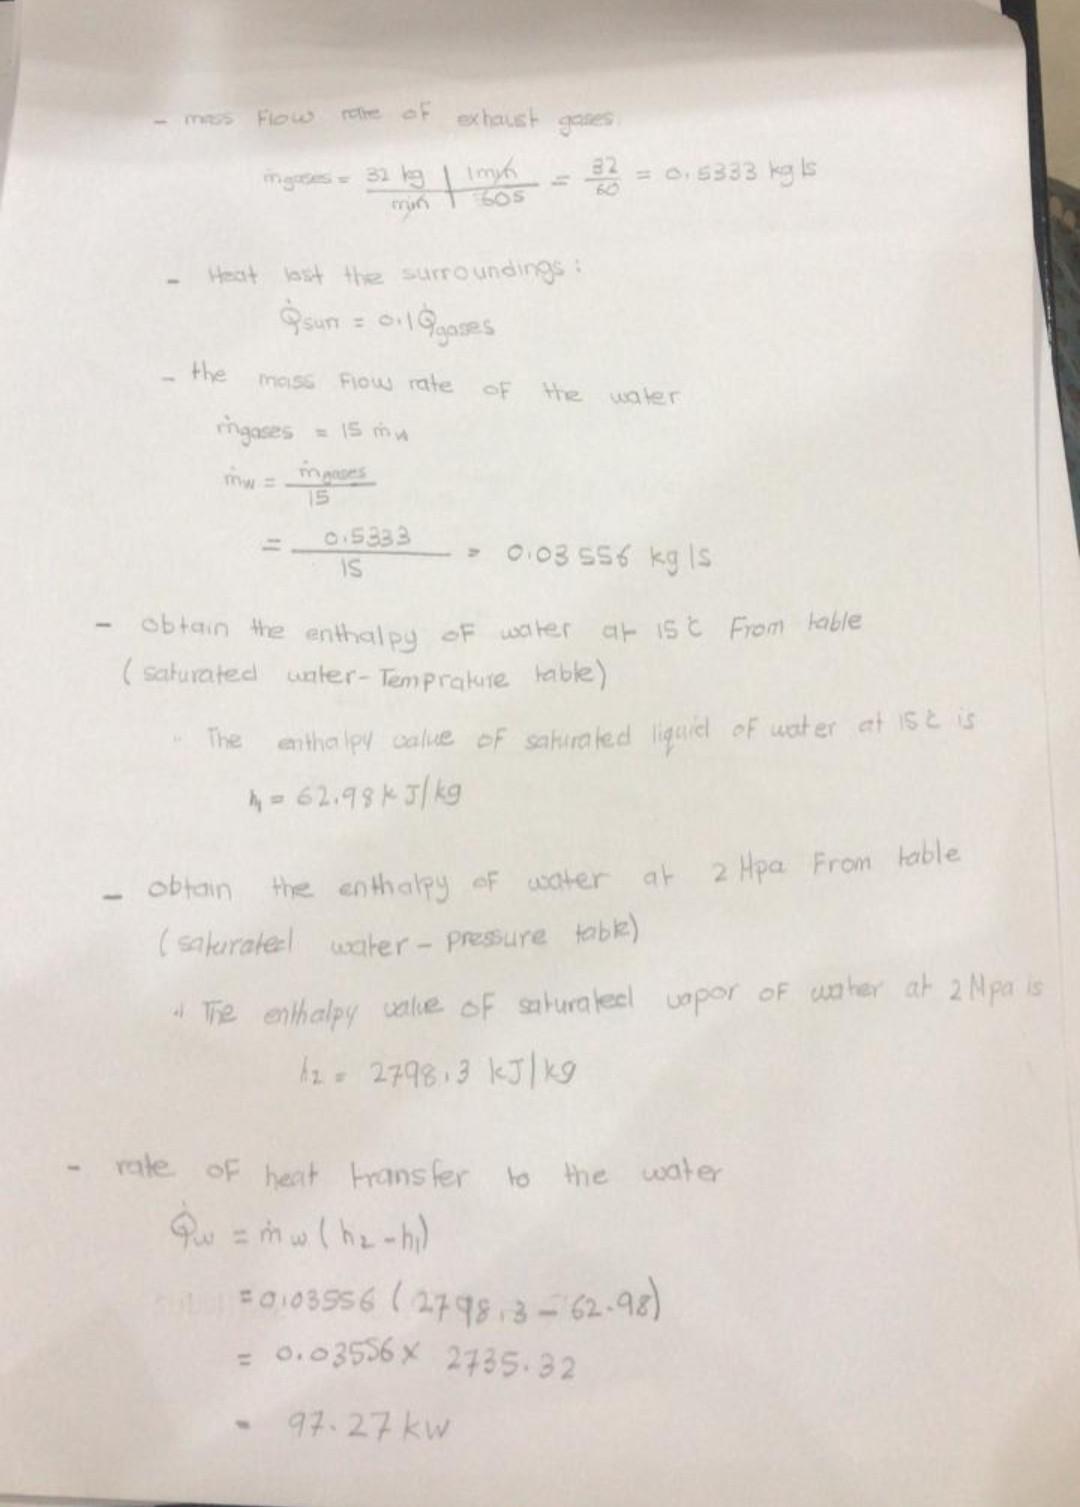 - mass Flow rate of exhaust gases.
ṁgases = 32 kg / min | 1 min / 60s = 32/60 = 0.5333 kg/s
- Heat lost the surroundings:
Q̇surr = 0.1 Q̇gases
- the mass Flow rate of the water
ṁgases = 15 ṁw
ṁw = ṁgases / 15
= 0.5333 / 15 = 0.03556 kg/s
- obtain the enthalpy of water at 15℃ From table
(saturated water-Temprature table)
The enthalpy value of saturated liquid of water at 15℃ is
h1 = 62.98 kJ/kg
- obtain the enthalpy of water at 2 Mpa From table
(saturated water - pressure table)
The enthalpy value of saturated vapor of water at 2 Mpa is
h2 = 2798.3 kJ/kg
- rate of heat transfer to the water
Q̇w = ṁw (h2 - h1)
= 0.03556 (2798.3 - 62.98)
= 0.03556 × 2735.32
= 97.27 kw